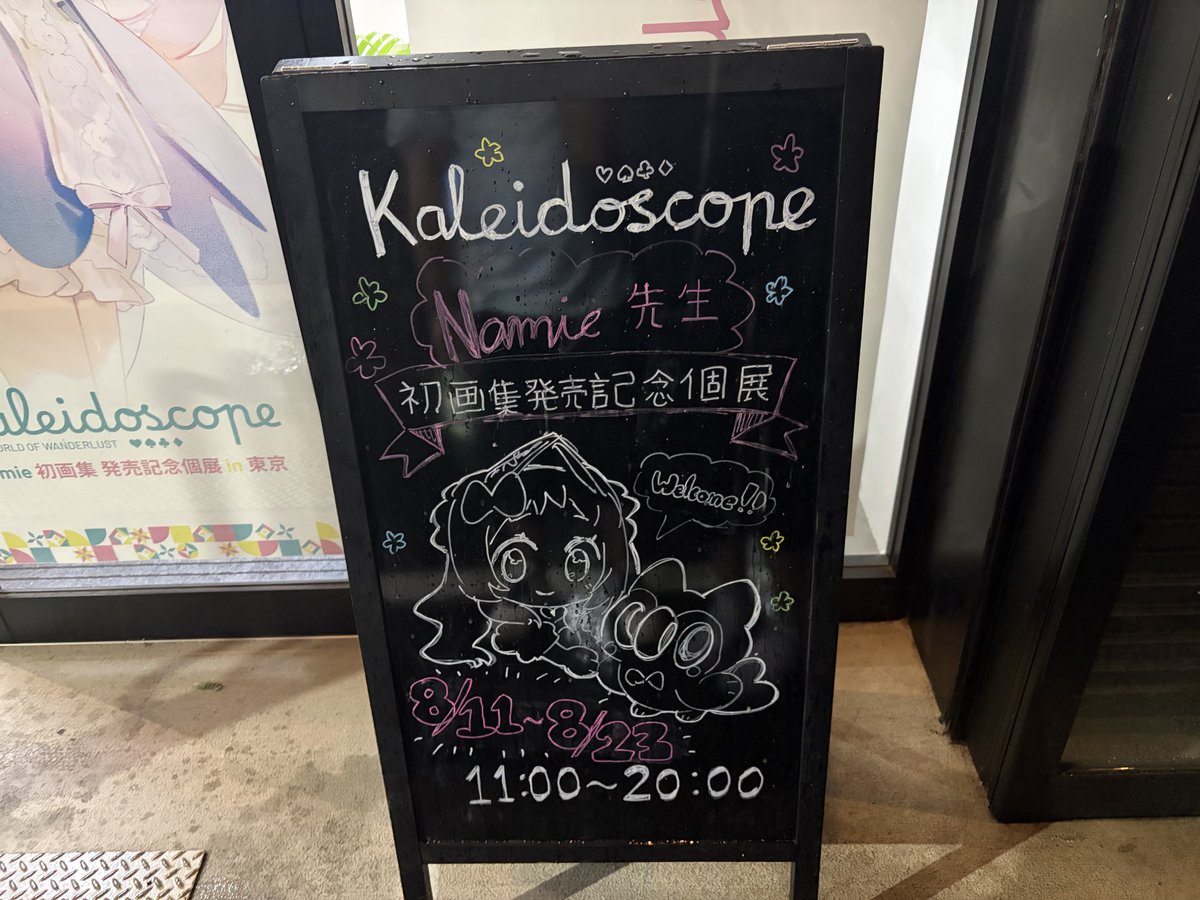 Kaleidoscope
Namie 先生
初画集発売記念個展
Welcome!!
8/11~8/23
11:00~20:00
aleidoscope
ORLD OF WANDERLUST
mie 初画集 発売記念個展 in 東京